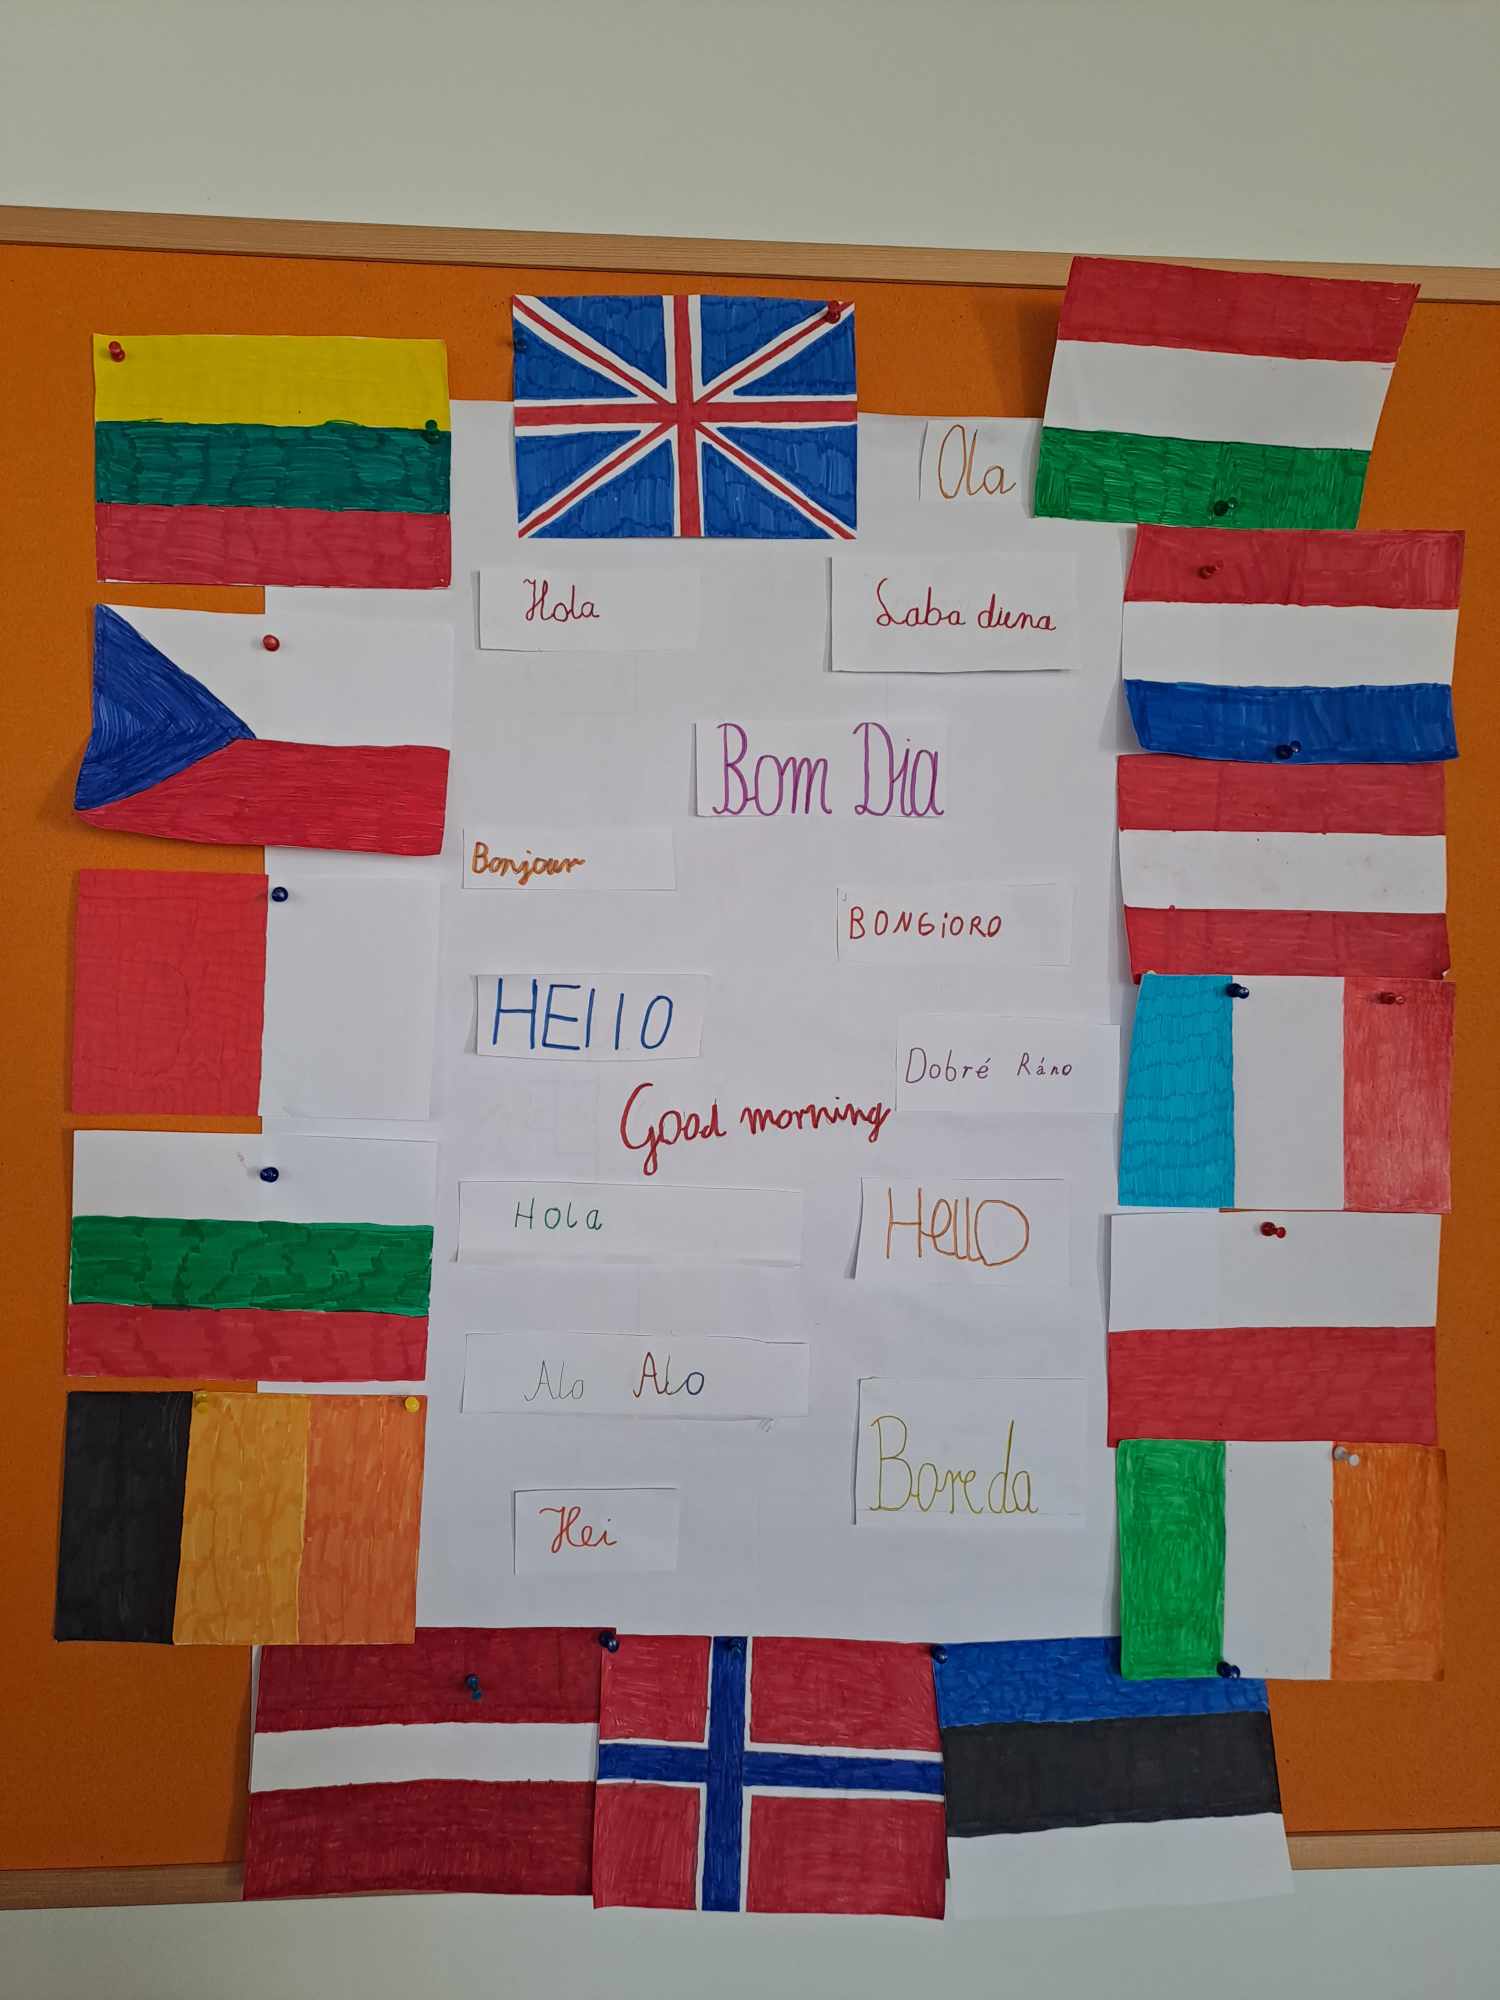 Ola
Hola
Laba diena
Bom Dia
Bonjour
BONGiORO
HEllO
Dobré Ráno
Good morning
Hola
Hello
Alo Alo
Boreda
Hei